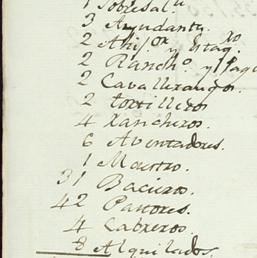 1 Sobresal
3 Ayudantes
2
2 Ranch.º y
2 Caballerangos.
2 tortilleros
4 Xancheros.
6 Aventadores.
1 Maestro.
31 Baciero.
42 Pastores.
4 Cabreros.
8 Alquilados.